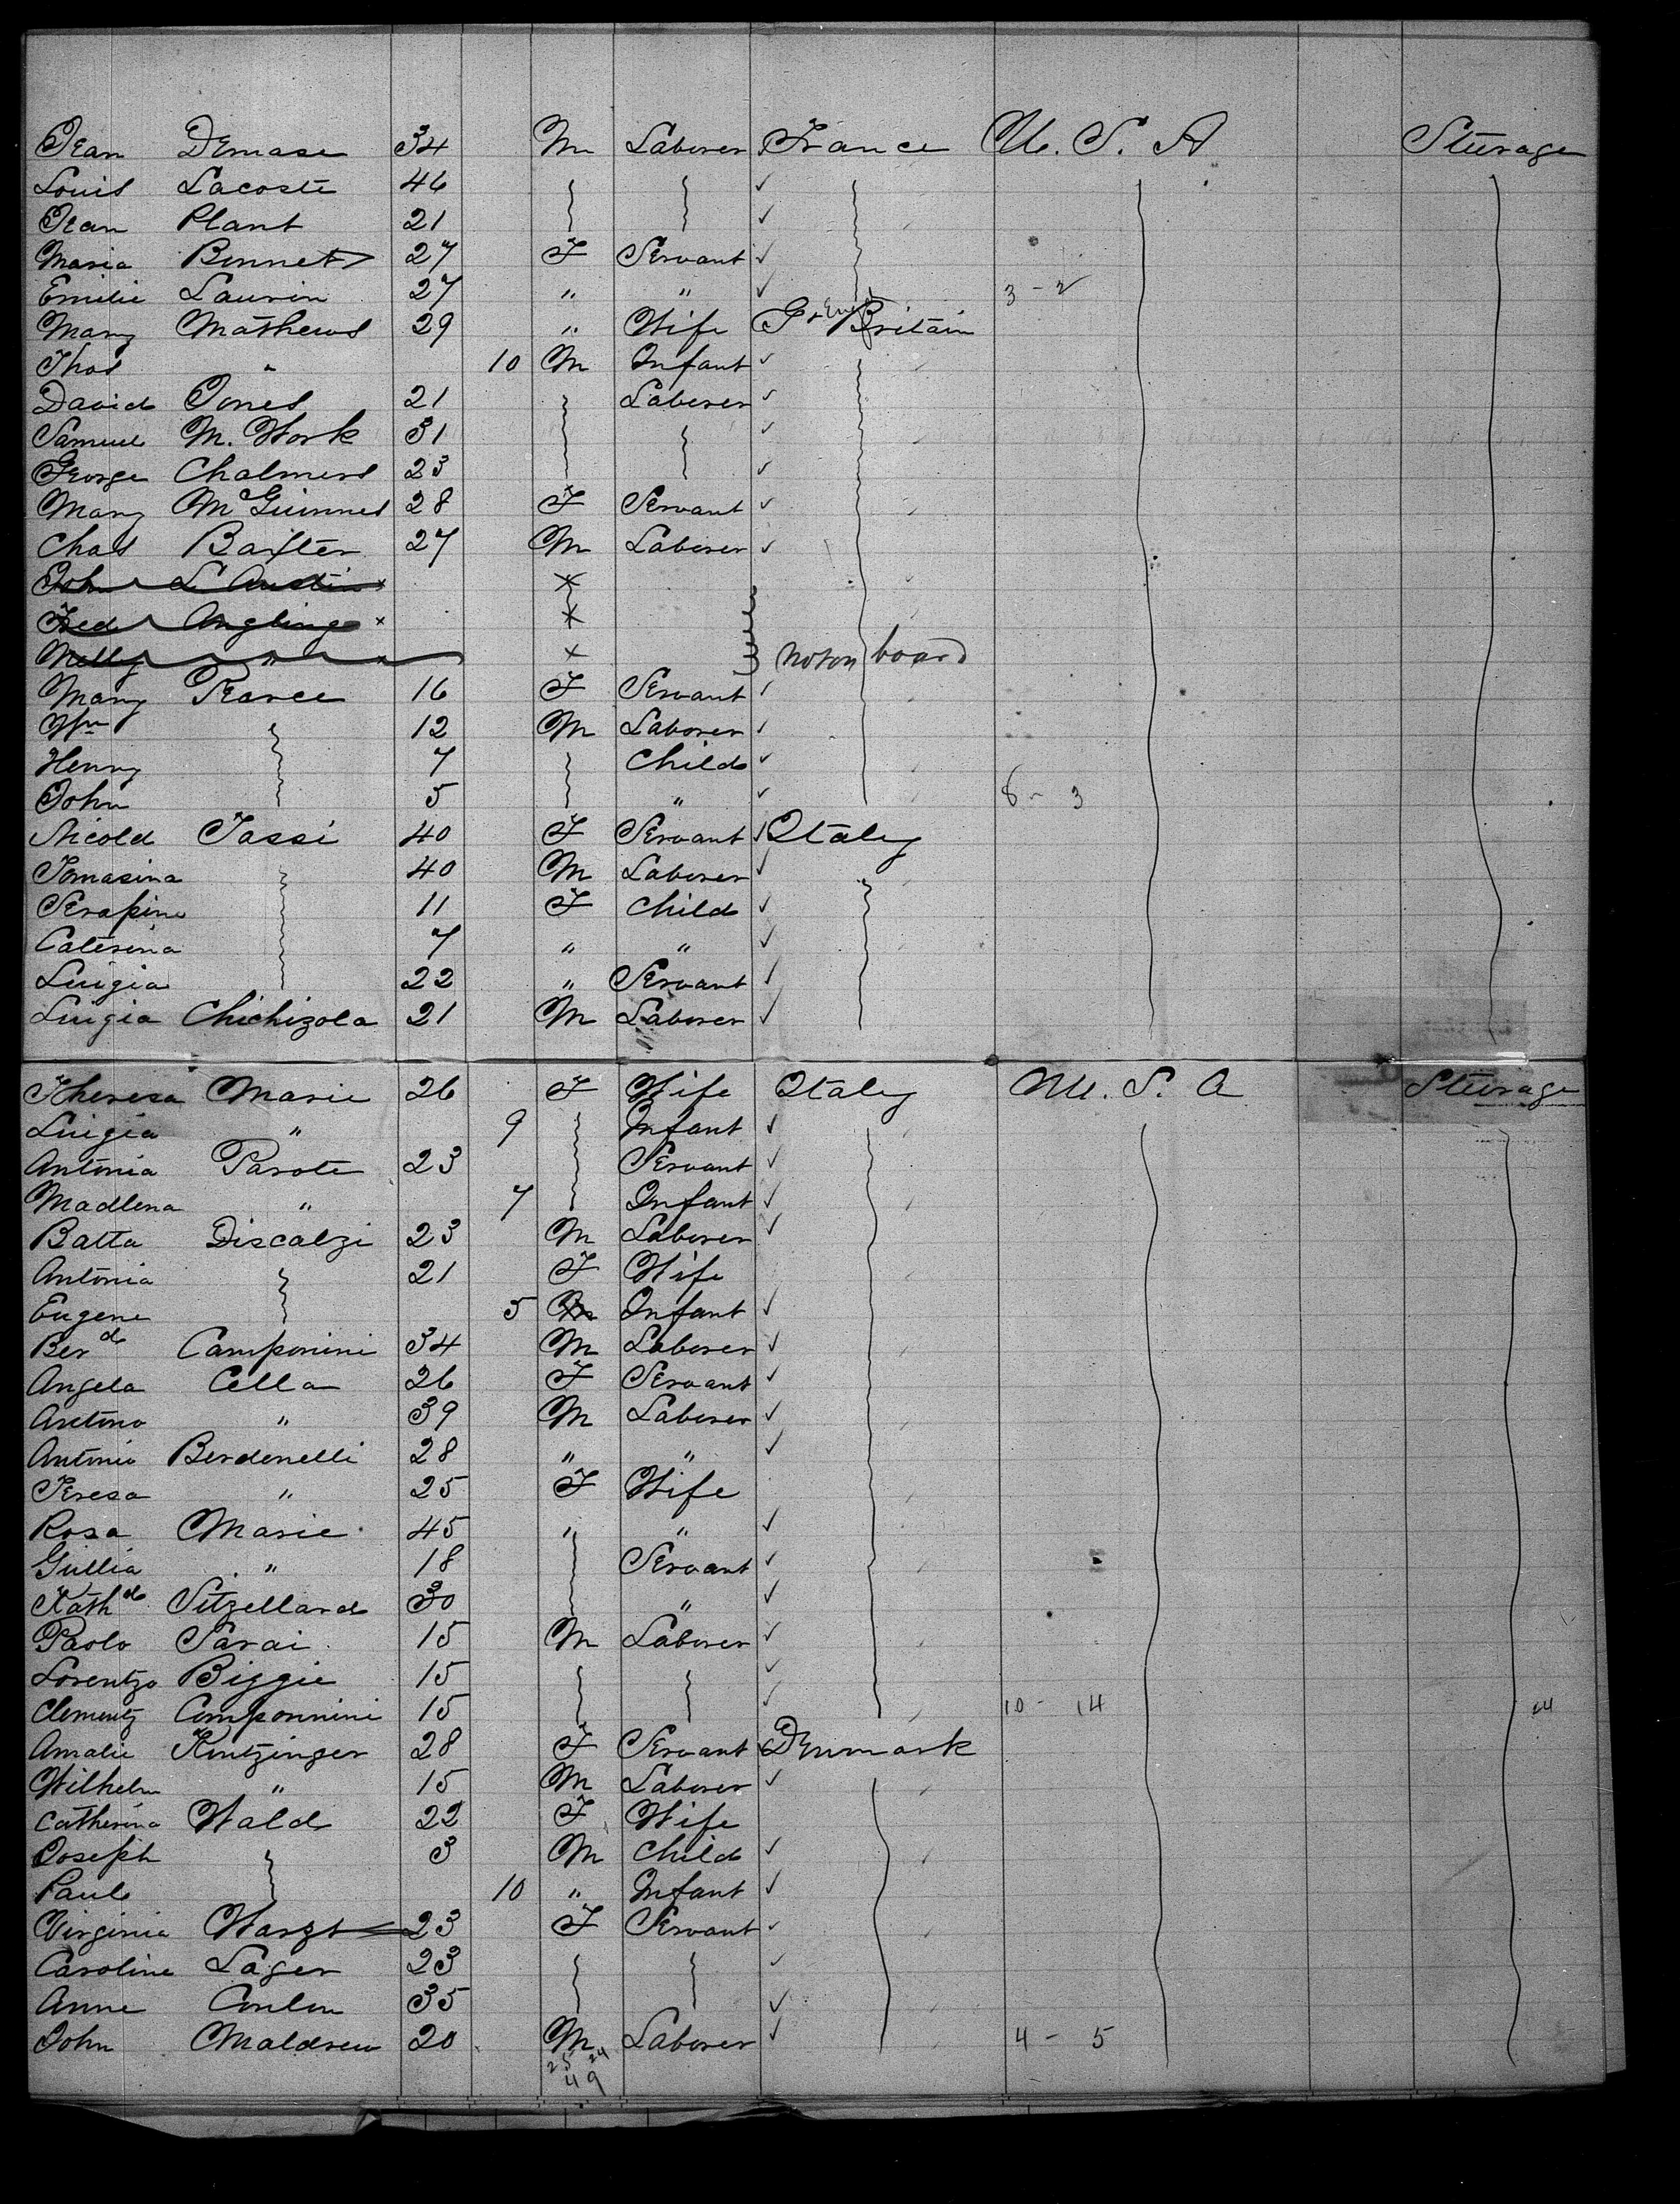 Jean Demase 34 M Laborer France U. S. A Steerage
Louis Lacoste 46
Jean Plant 21
Maria Bonnet 27 F Servant
Emilie Laurin 27 " " 3 - 2
Mary Mathews 29 " Wife Gr Britain
Thos " 10 M Infant
David Jones 21 Laborer
Samuel M. Work 31
George Chalmers 23
Mary McGuinnes 28 F Servant
Chas Baxter 27 M Laborer
John L Austin x
Fred Angling x
Nelly " x not on board
Mary Pearce 16 F Servant
Wm 12 M Laborer
Henry 7 Child
John 5 " 8 - 3
Nicold Tassi 40 F Servant Italy
Tomasina 40 M Laborer
Serafine 11 F Child
Caterina 7 " "
Luigia 22 " Servant
Luigia Chichizola 21 M Laborer
Theresa Marie 26 F Wife Italy U. S. A Steerage
Luigia " 9 Infant
Antonia Parote 23 Servant
Madlena " 7 Infant
Batta Discalzi 23 M Laborer
Antonia 21 F Wife
Eugene 5 Infant
Berd Camponini 34 M Laborer
Angela Cella 26 F Servant
Antono " 39 M Laborer
Antonio Berdenelli 28 " "
Teresa " 25 F Wife
Rosa Marie 45 " "
Gullia " 18 Servant
Kathd Sitzellard 30 "
Paolo Sarai 15 M Laborer
Lorentzo Biggie 15
Clementz Componnini 15 10 - 14 14
Amalie Kintzinger 28 F Servant Denmark
Wilhelm " 15 M Laborer
Catherina Wald 22 F Wife
Joseph 3 M Child
Paul 10 " Infant
Virginia Warzt 23 F Servant
Caroline Lager 23
Anne Conlon 35
John Maldrew 20 M Laborer 4 - 5
25 24
49